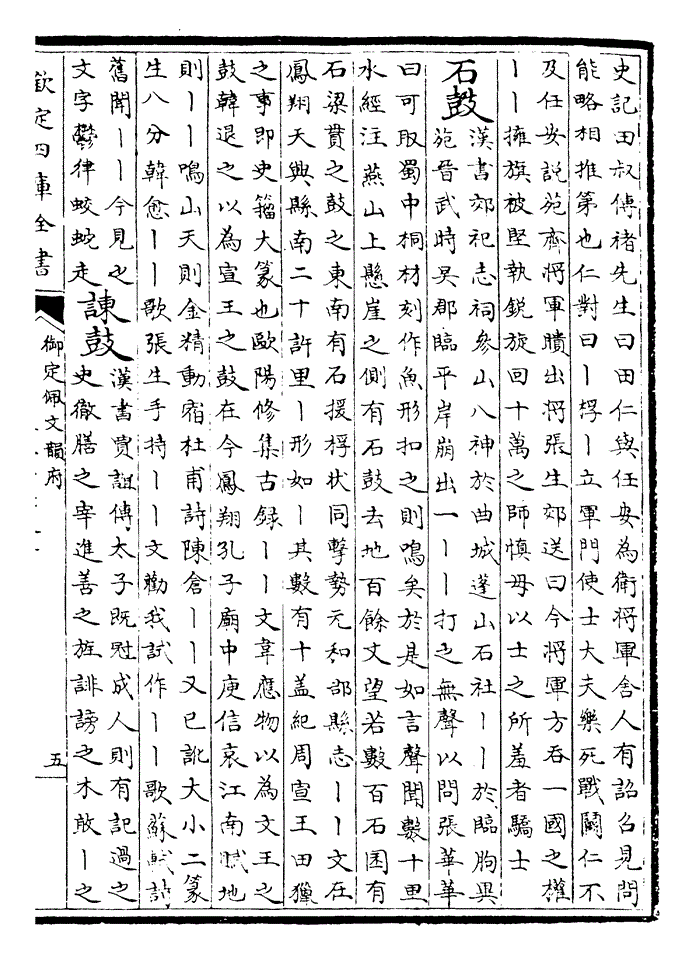 史記田叔傳褚先生曰田仁與任安為衛將軍舍人有詔召見問
能略相推第也仁對曰丨桴丨立軍門使士大夫樂死戰鬭仁不
及任安說苑齊將軍瞶出將張生郊送曰今將軍方吞一國之權
丨丨擁旗被堅執銳旋回十萬之師慎毋以士之所羞者驕士
石鼓
漢書郊祀志祠參山八神於曲城蓬山石社丨丨於臨朐異
苑晉武時吳郡臨平岸崩出一丨丨打之無聲以問張華華
曰可取蜀中桐材刻作魚形扣之則鳴矣於是如言聲聞數十里
水經注燕山上懸崖之側有石鼓去地百餘丈望若數百石囷有
石梁貫之鼓之東南有石援桴狀同擊勢元和郡縣志丨丨文在
鳳翔天興縣南二十許里丨形如丨其數有十蓋紀周宣王田獵
之事即史籀大篆也歐陽修集古録丨丨文韋應物以為文王之
鼓韓退之以為宣王之鼓在今鳳翔孔子廟中庾信哀江南賦地
則丨丨鳴山天則金精動宿杜甫詩陳倉丨丨又已訛大小二篆
生八分韓愈丨丨歌張生手持丨丨文勸我試作丨丨歌蘇軾詩
舊聞丨丨今見之
文字鬱律蛟蛇走
諫鼓
漢書賈誼傳太子既冠成人則有記過之
史徹膳之宰進善之旌誹謗之木敢丨之
欽定四庫全書
御定佩文韻府
五